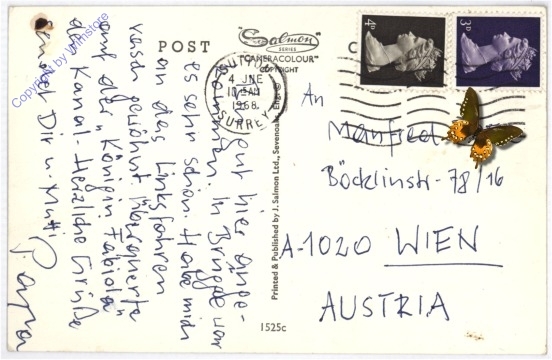 POST C
"Salmon
SERIES
"CAMERACOLOUR"
COPYRIGHT
SUTTON
4 JNE
1968
SURREY
4D
3D
gut hier ange-
kommen. In war
es sehr schön. Habe mich
an das Linksfahren
rasch gewöhnt. Überquerte
auf der "Königin Fabiola"
den Kanal. Herzliche Grüße
sendet Dir u. Mutti
Papa
Printed & Published by J. Salmon Ltd., Sevenoaks, England
1525c
An
Manfred
Böcklinstr. 78/16
A-1020 WIEN
AUSTRIA
Copyright by Winnstore